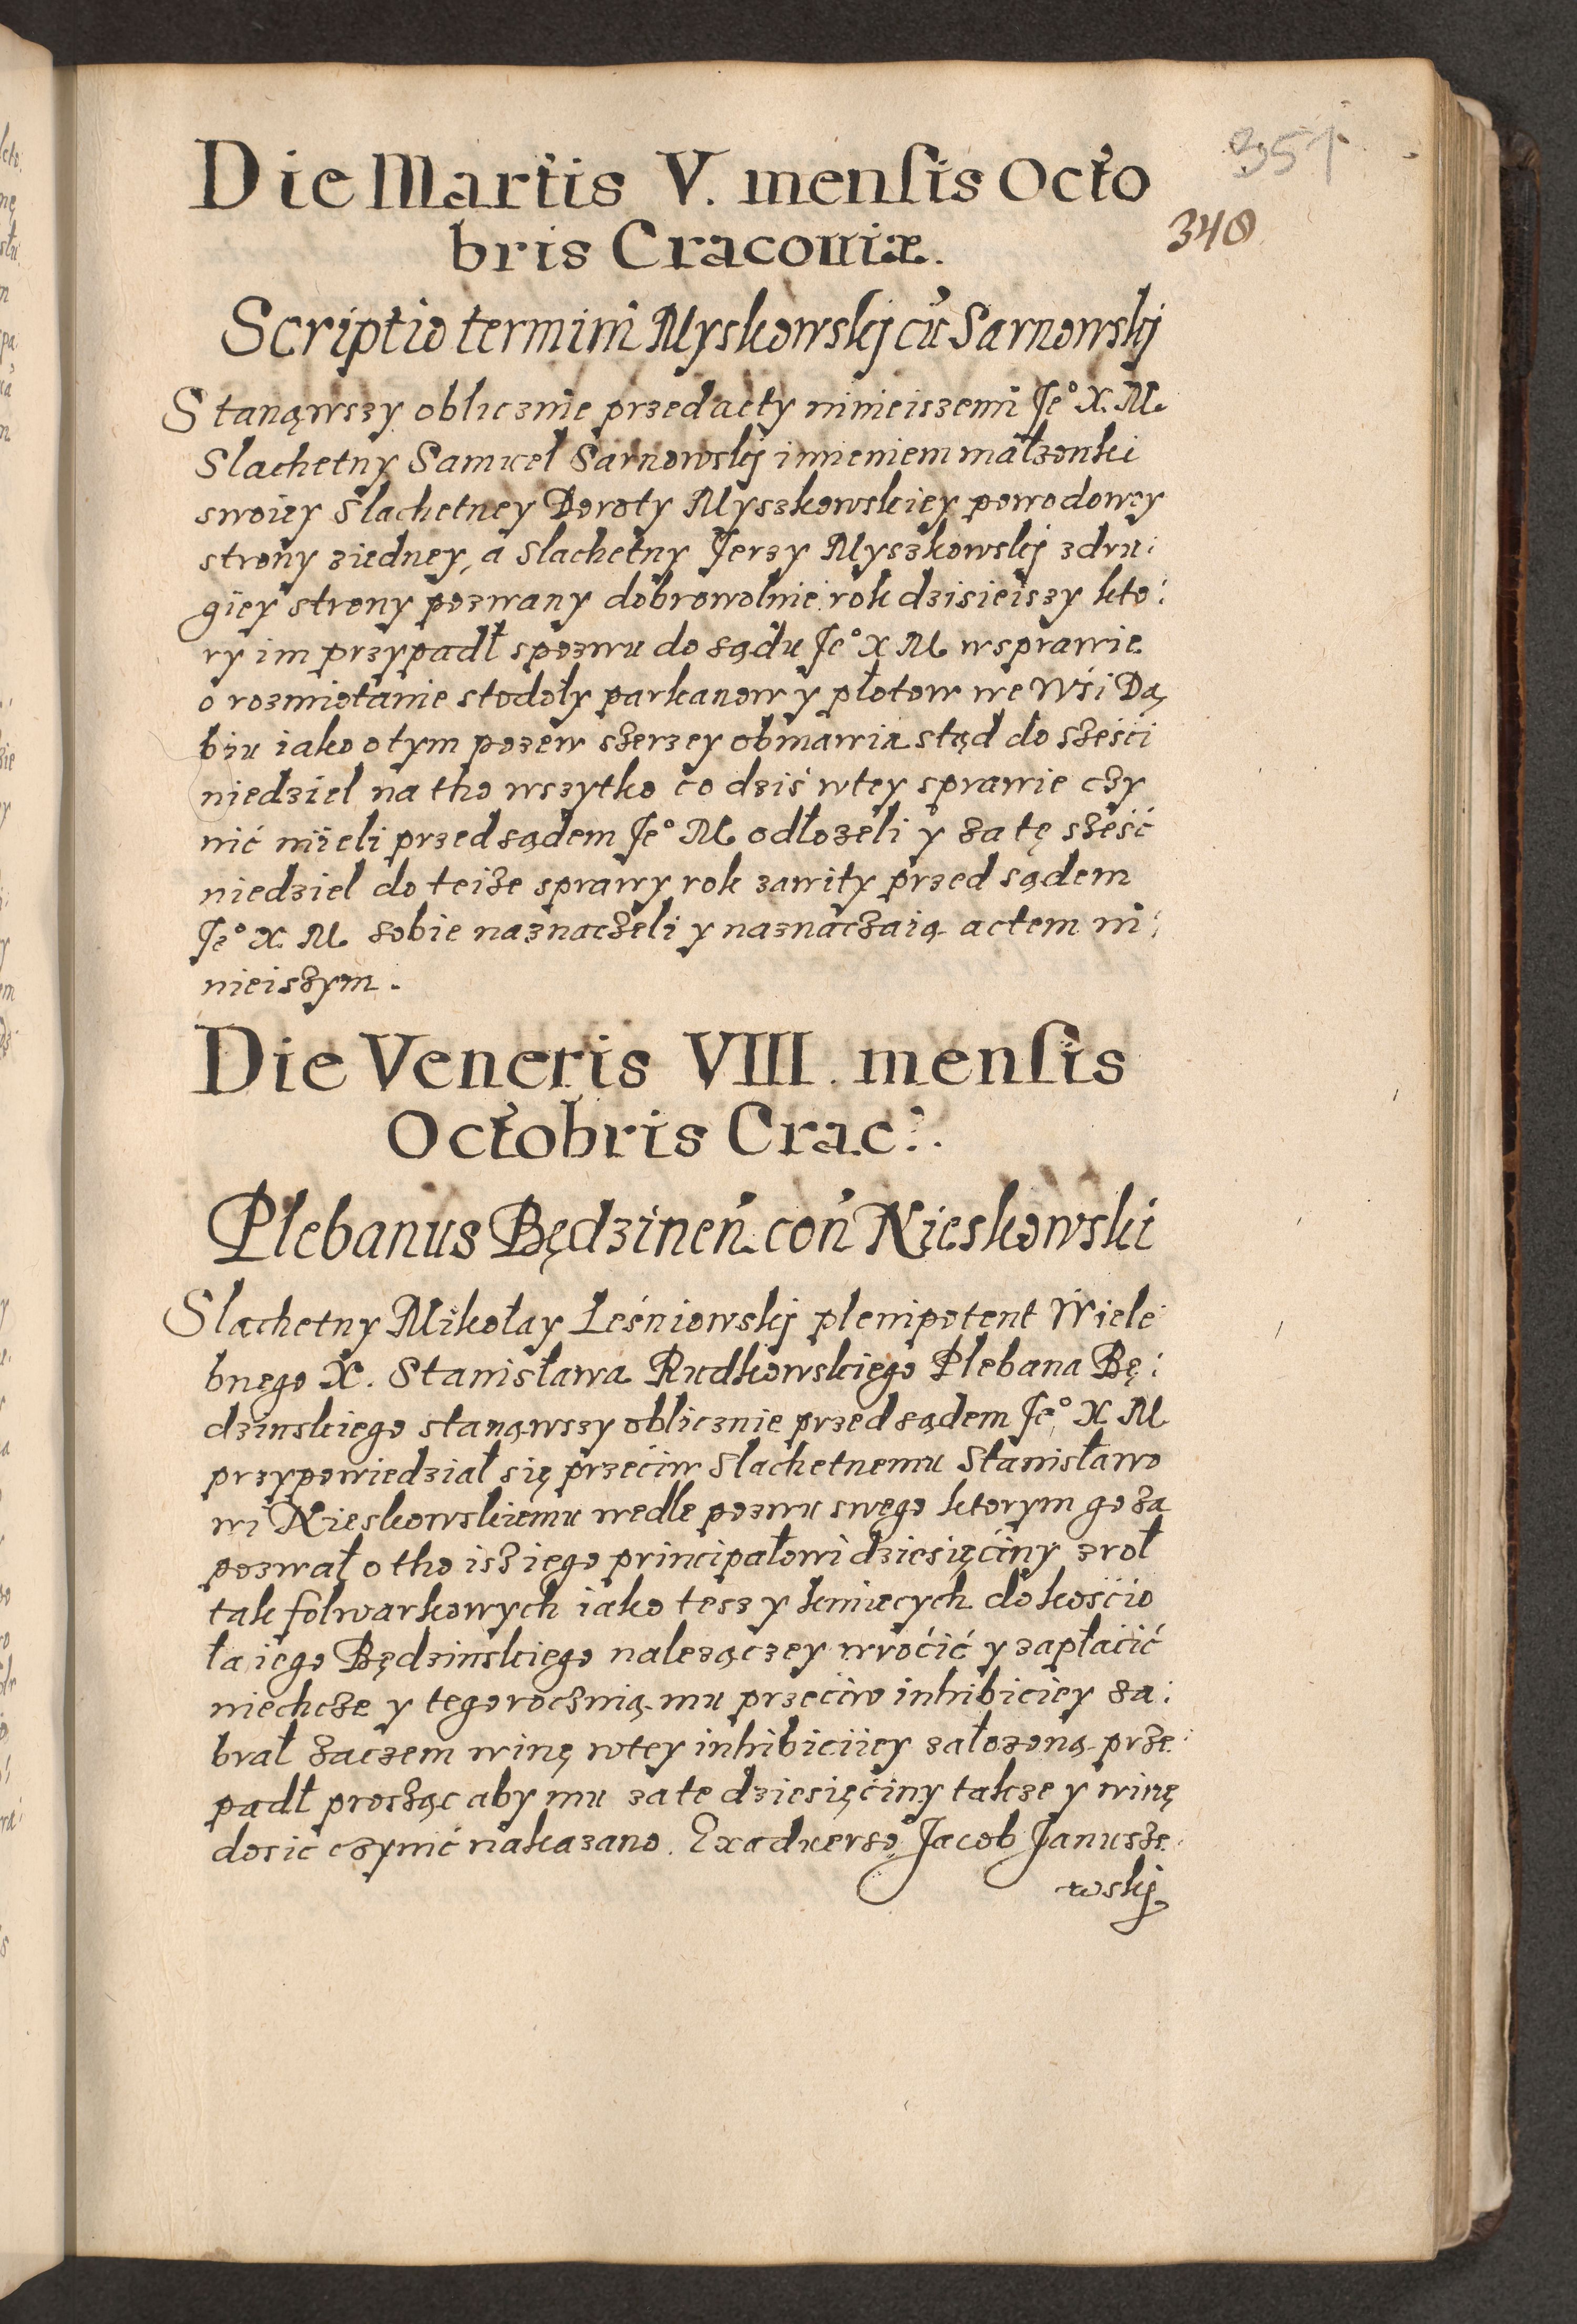 351
Die Martis V. mensis Octo
348
bris Cracouiæ.
Scriptio termini Myskowskj cū Sarnowskj
Stanąwszy oblicznie przed acty ninieiszemi Je° X. M.
Slachetny Samuel Sarnowskj imieniem małzonki
swoiey Slachetney Doroty Myszkowskiey powodowey
strony ziedney, a Slachetny Jerzy Myszkowskj zdru:
giey strony pozwany dobrowolnie rok dzisieiszy kto:
ry im przypadł spozwu do sądu Je° X M wsprawie
o rozmiotanie stodoły parkanow y płotow we Wśi Dą
biu iako o tym pozew szerzey obmawia stąd do sześci
niedziel na tho wszytko co dziś wtey sprawie czy
nić mieli przed sądem Je° M odłozeli y za tę sześć
niedziel do teize sprawy rok zawity przed sądem
Je° X. M sobie naznaczeli y naznaczaią actem ni:
nieiszym.
Die Veneris VIII. mensis
Octobris Crac:.
Plebanus Będzineń. coń Nieskowski
Slachetny Mikołay Leśniowskj plenipotent Wiele
bnego X. Stanisława Rudkowskiego Plebana Bę:
dzinskiego stanąwszy oblicznie przed sądem Je° X M
przypowiedział się przećiw Slachetnemu Stanisławo
wi Nieskowskiemu wedle pozwu swego ktorym go za
pozwał o tho isz iego principałowi dziesięćiny zrol
tak folwarkowych iako tesz y kmiecych do kośćio
ła iego Będzinskiego nalezączey wroćić y zapłaćić
niechcze y tegorocznią mu przećiw inhibiciey za:
brał zaczem winę wtey inhibiciiey załozoną prze:
padł prosząc aby mu za te dziesięćiny takze y winę
dosic czynić nakazano. Exaduerso Jacob Janusze:
wskj